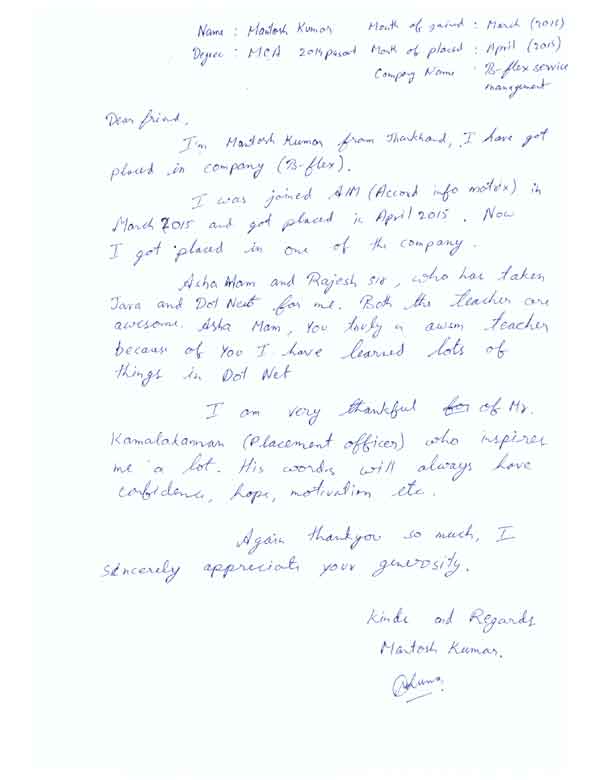 Name : Mantosh Kumar Month of joined : March (2015)
Degree : MCA 2014 passed Month of placed : April (2015)
Company Name : B-flex service
management
Dear friend,
I'm Mantosh Kumar from Jharkhand, I have got
placed in company (B-flex).
I was joined AIM (Accord info matrix) in
March 2015 and got placed in April 2015. Now
I got placed in one of the company.
Asha Mam and Rajesh sir, who has taken
Java and Dot Net for me. Both the teacher are
awesome. Asha Mam, You truly a awsm teacher
because of You I have learned lots of
things in Dot Net
I am very thankful for of Mr.
Kamalakannan (Placement officer) who inspires
me a lot. His words will always have
confidence, hope, motivation etc.
Again thankyou so much, I
sincerely appreciate your generosity.
Kinds and Regards
Mantosh Kumar.